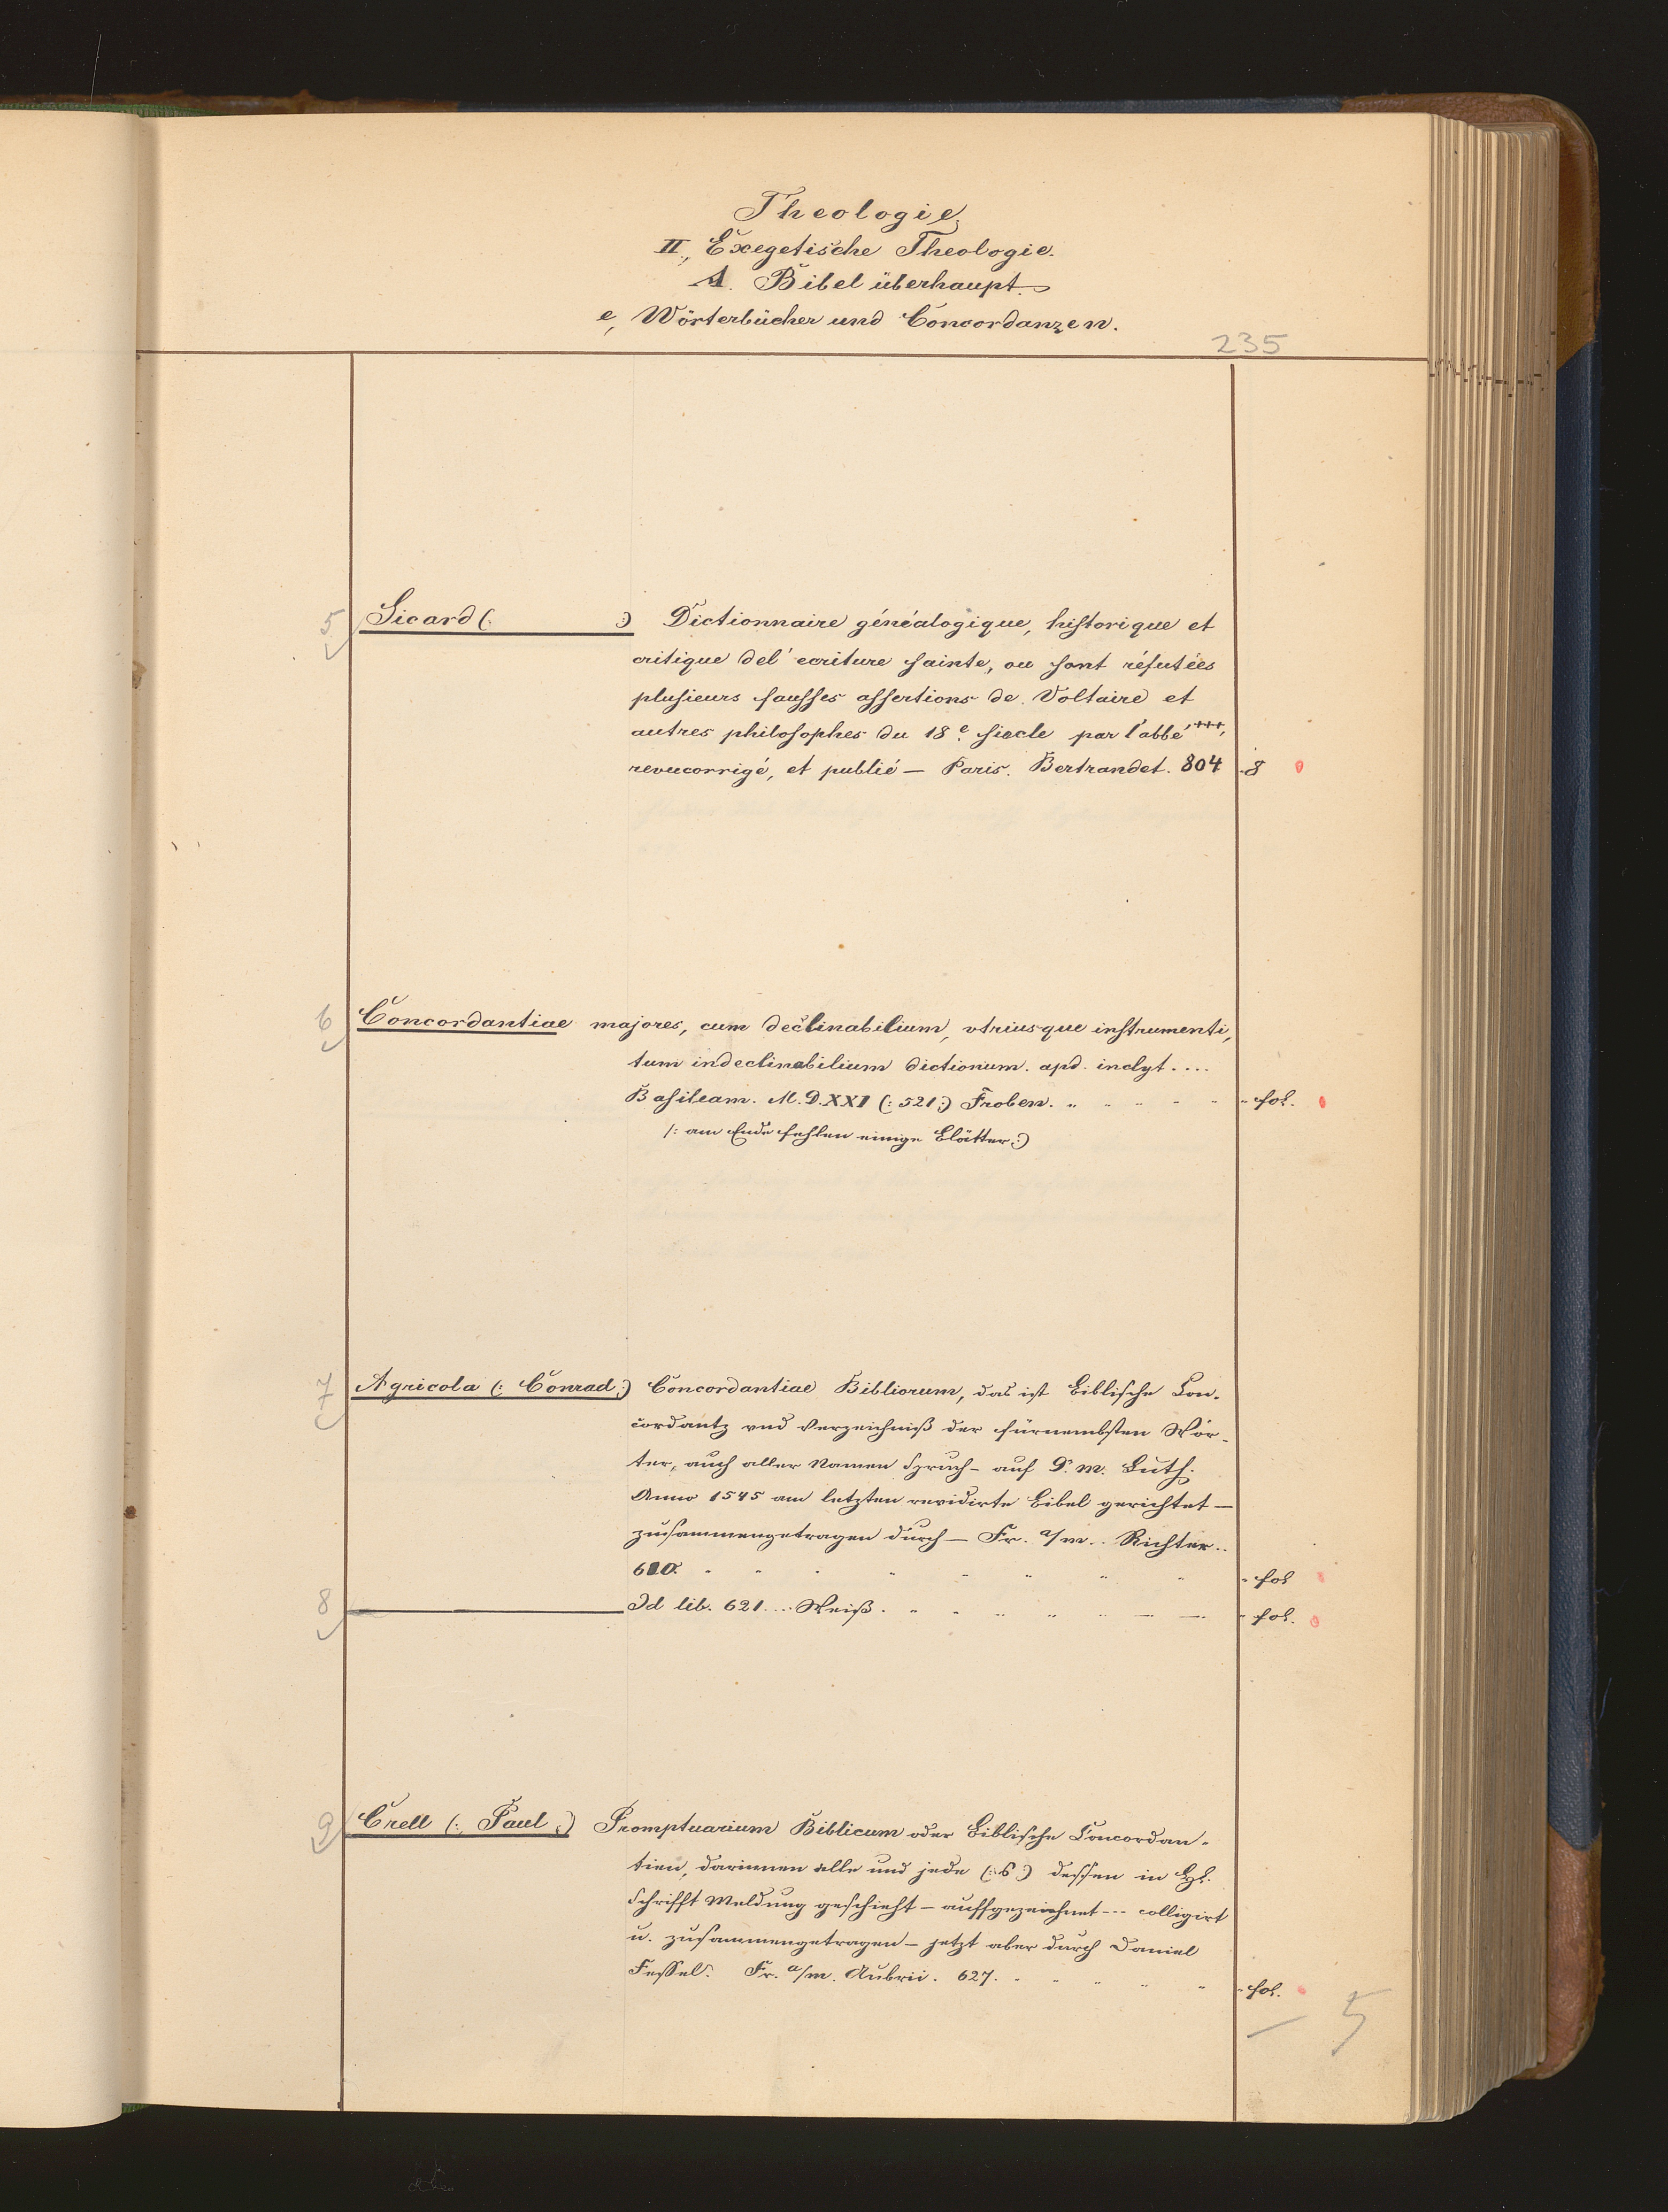 Theologie.
II., Exegetische Theologie.
A. Bibel überhaupt.
e, Wörterbücher und Concordanzen.
235
5 Sicard (: :) Dictionnaire généalogique, historique et
critique del' ecriture sainte, ou sont réfutées
plusieurs fausses assertions de Voltaire et
autres philosophes du 18e. siecle par l'abbé +++,
revucorrigé, et publié — Paris. Bertrandet. 804 8
6 Concordantiae majores, cum declinabilium, vtriusque instrumenti,
tum indeclinabilium dictionum. apd. inclyt....
Basileam. M.D.XXI (: 521 :) Froben. fol.
(: am Ende fehlen einige Blätter :)
7 Agricola (: Conrad :) Concordantiae Bibliorum, das ist Biblische Con-
cordantz vnd Verzeichniß der fürnembsten Wör-
ter, auch aller Namen Spruch - auf D. M. Luth.
Anno 1545 am letzten revidirte Bibel gerichtet —
zusammengetragen durch — Fr. a/m.. Richter..
610. fol
8 Id lib. 621.... Weiß. fol.
9 Crell (: Paul :) Promptuarium Biblicum oder Biblische Concordan-
tien, darinnen alle und jede (: 6 :) dessen in Hl.
Schrifft Meldung geschieht — auffgezeichnet --- colligirt
u. zusammengetragen — jetzt aber durch Daniel
Fessel. Fr. a/m. Aubrii. 627. fol.
— 5